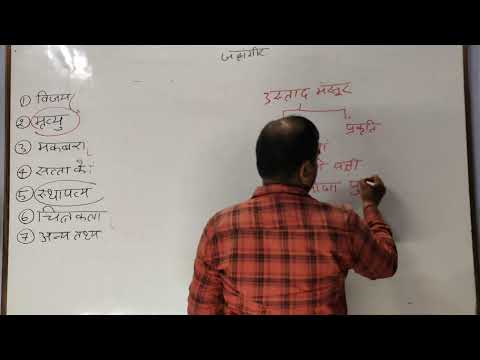 जहांगीर
① विजय
② मृत्यु
③ मकबरा
④ सत्ता के
⑤ स्थापत्य
⑥ चित्रकला
⑦ अन्य तथ्य
उस्ताद मंसूर
प्रकृति